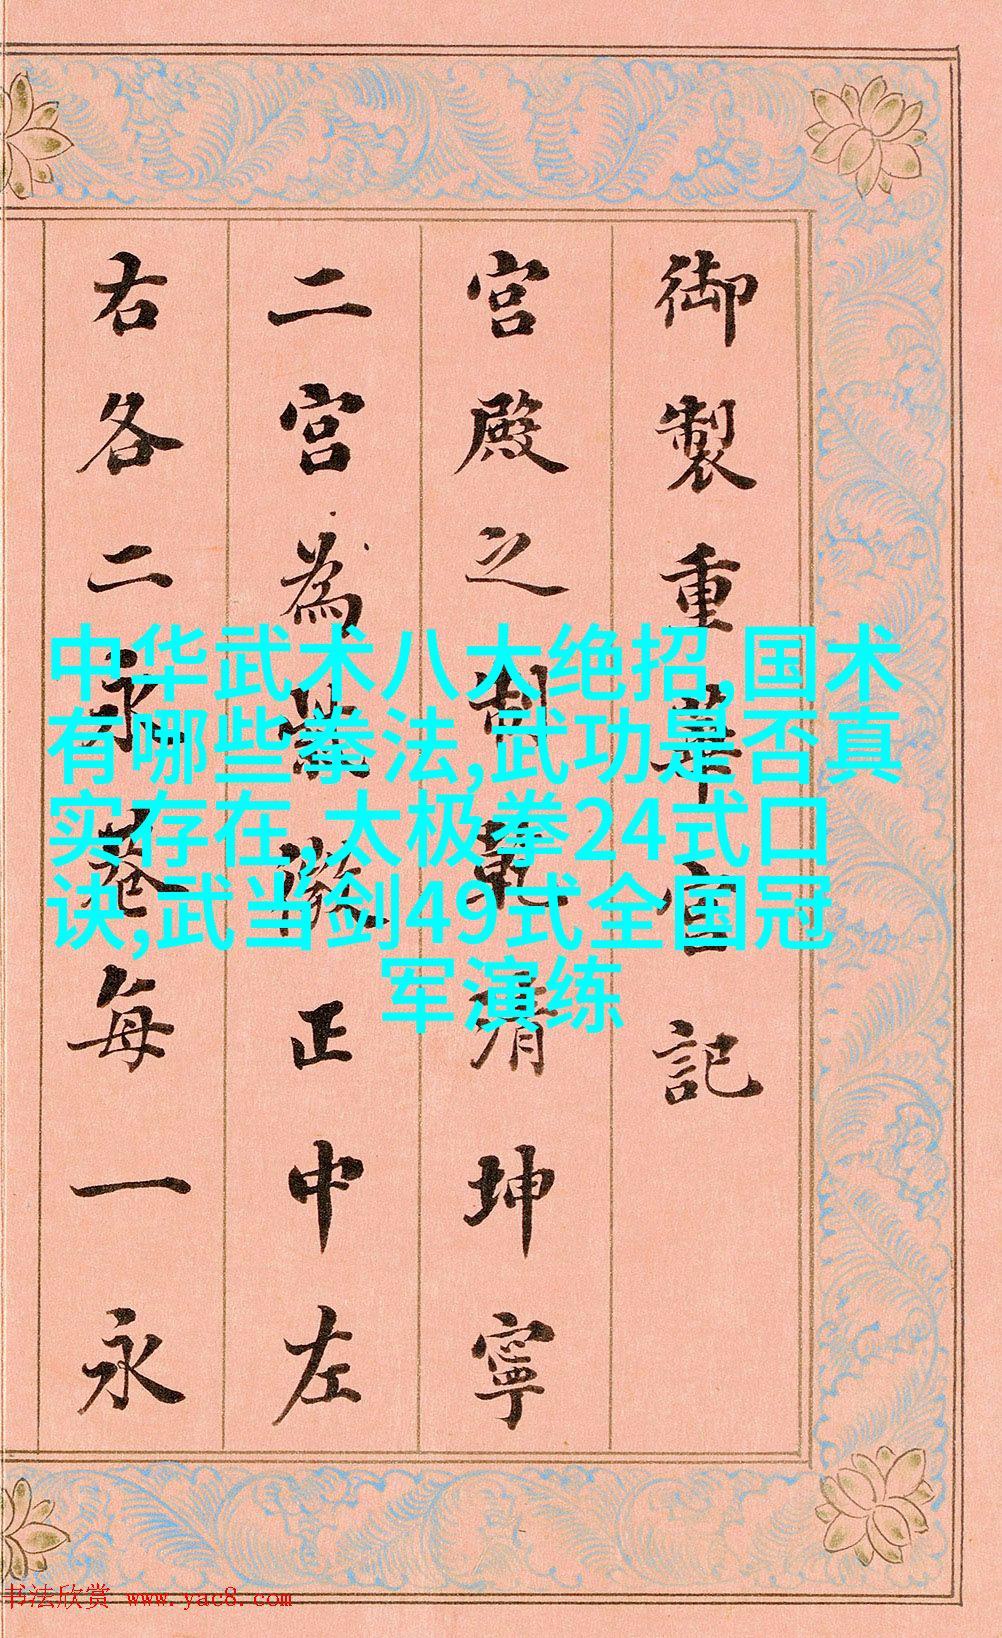 御製重華宮記
宮殿之制乾清坤寧
二宮為紫微正中左
右各二永巷每一永
中华武术八大绝招,国术
有哪些拳法,武功是否真
实存在,太极拳24式口
诀,武当剑49式全国冠
军演练
书法欣赏 www.yac8.com